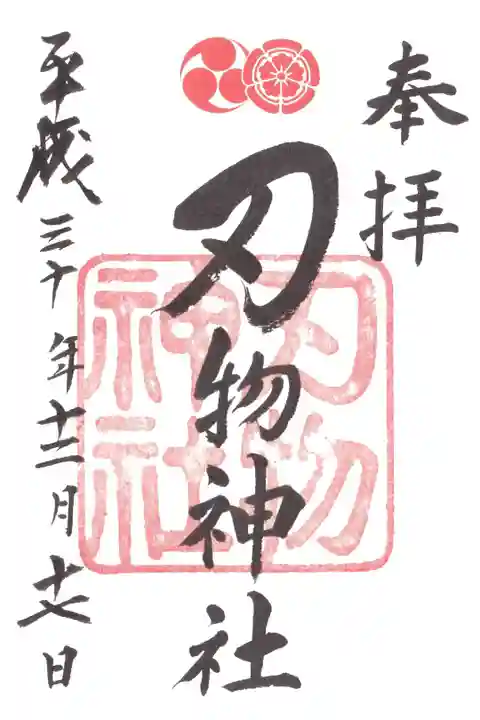 奉拝
刃物神社
刃物
神社
平成三十年十二月十七日